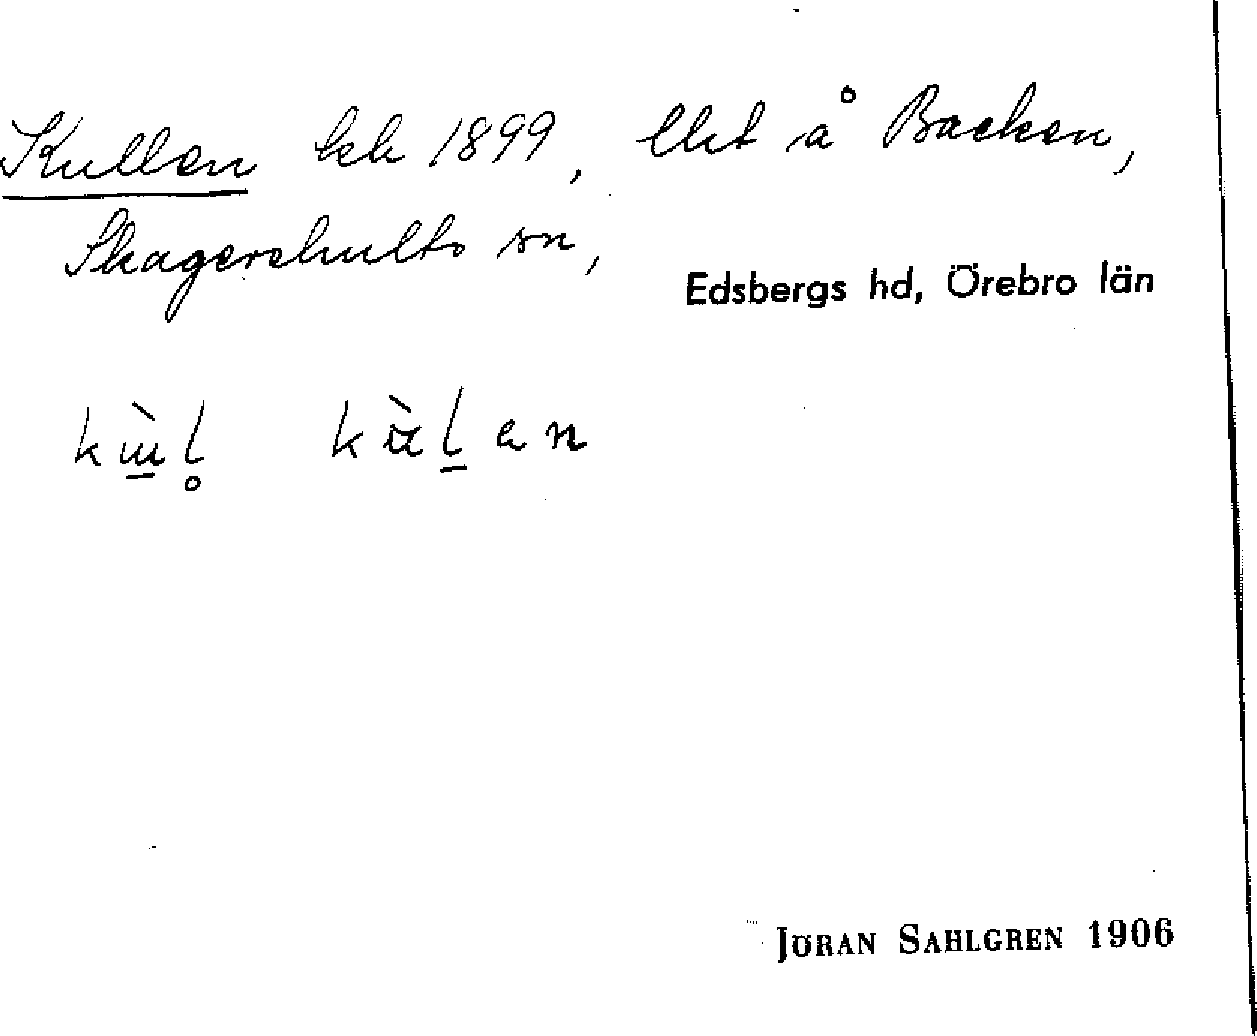 Kullen kek 1899, lht å Backen,
Skagershults sn,
Edsbergs hd, Örebro län
JÖRAN SAHLGREN 1906